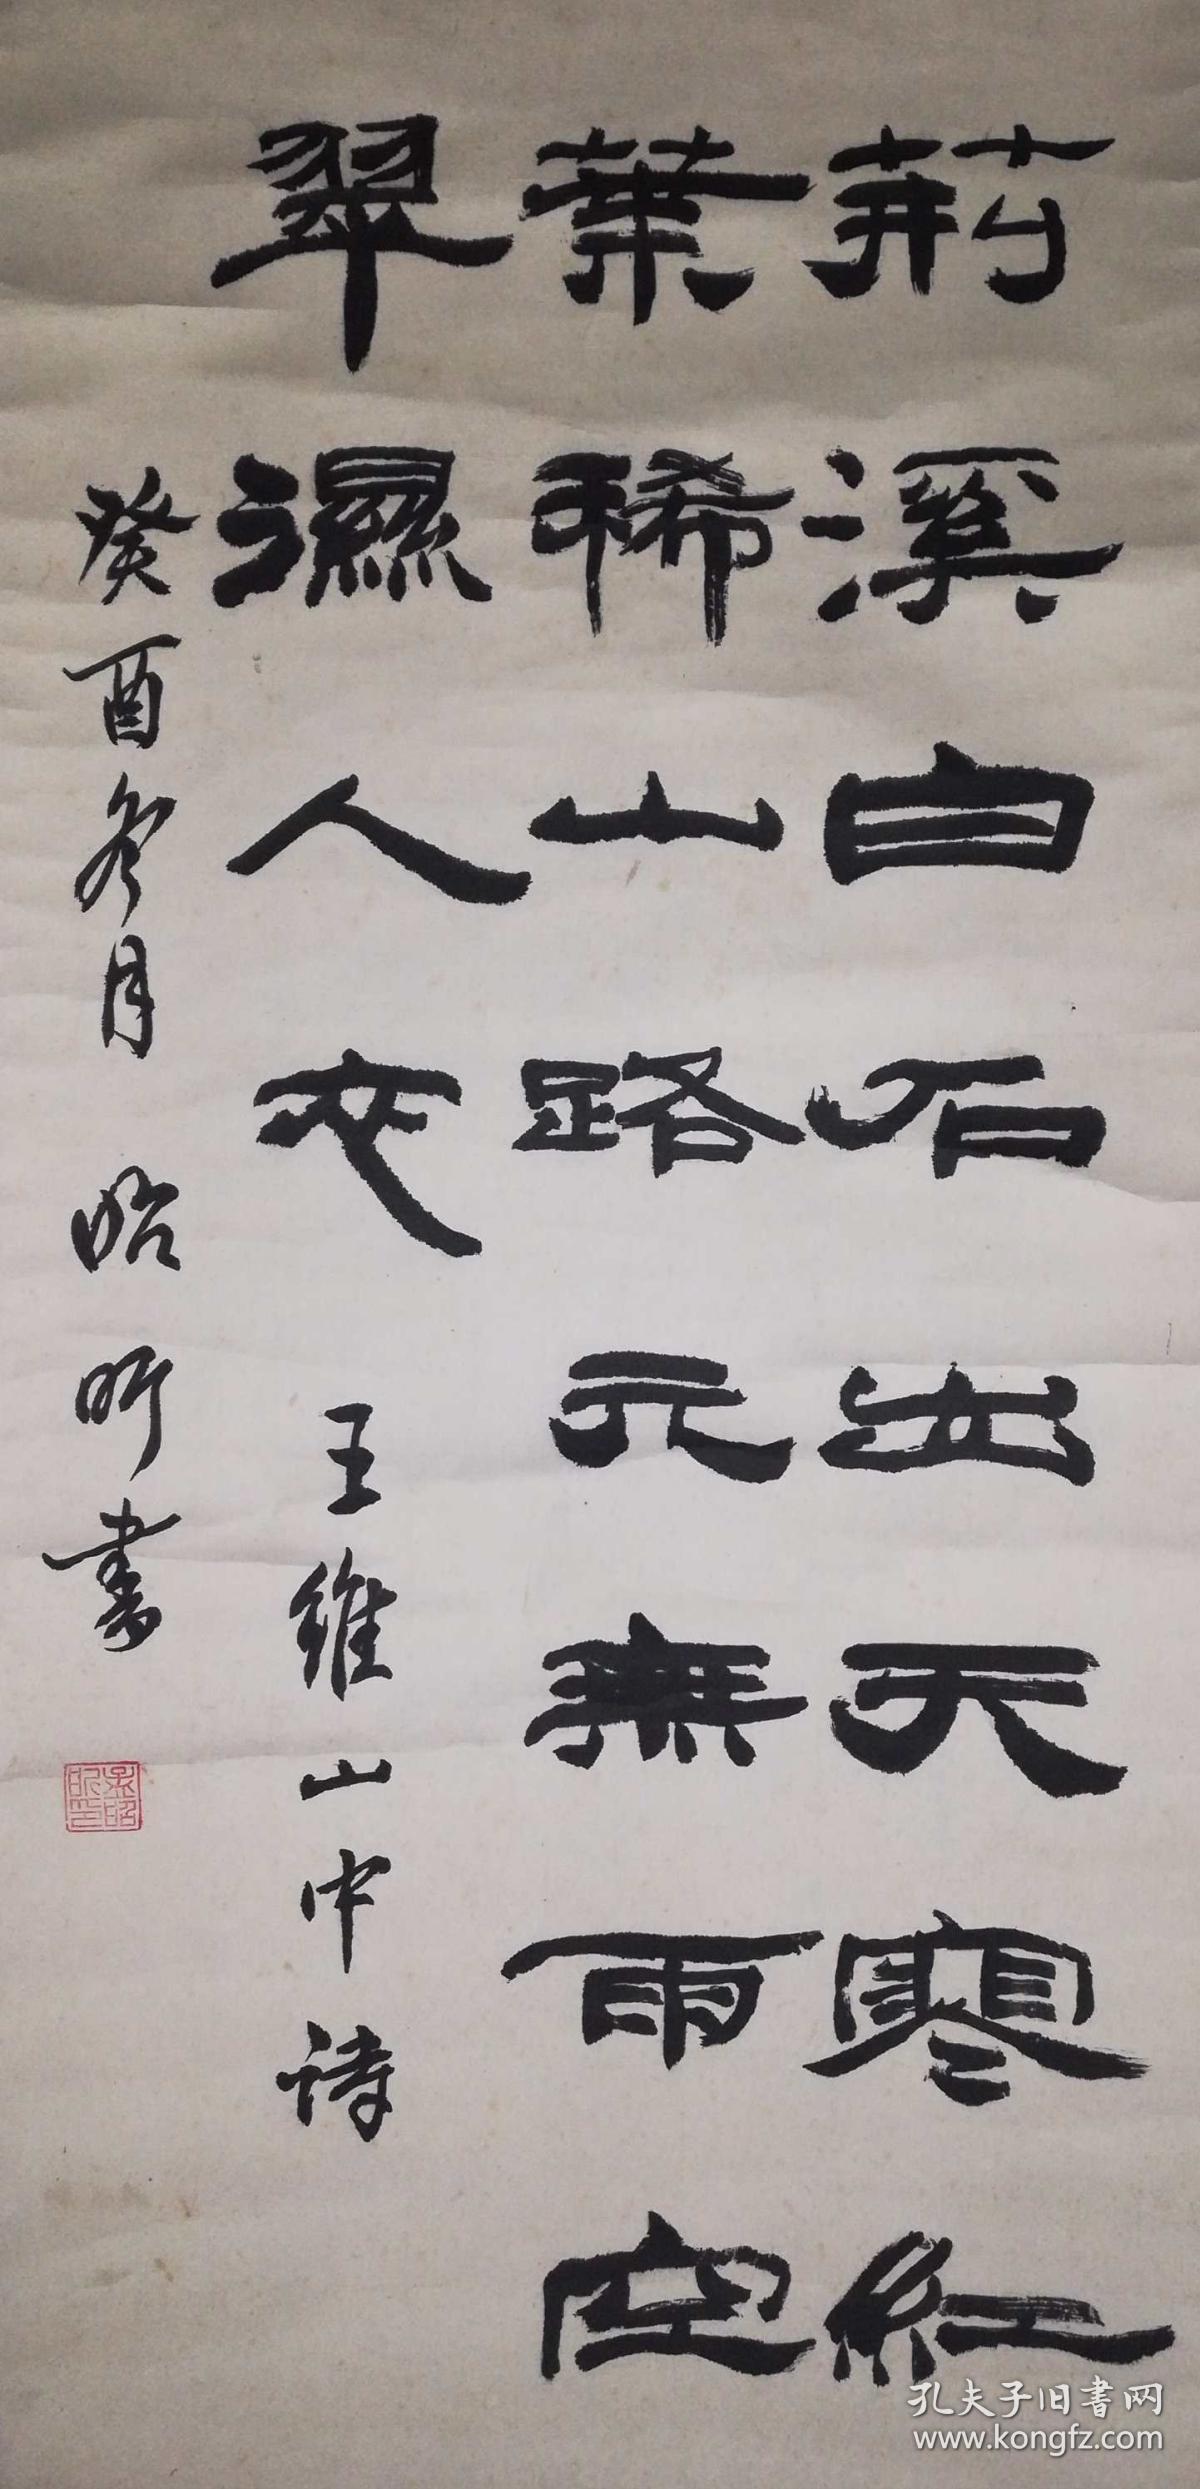 荊溪白石出天寒紅
葉稀山路元無雨空
翠濕人衣
王維山中詩
癸酉冬月 昭昕書
孔夫子旧书网
www.kongfz.com